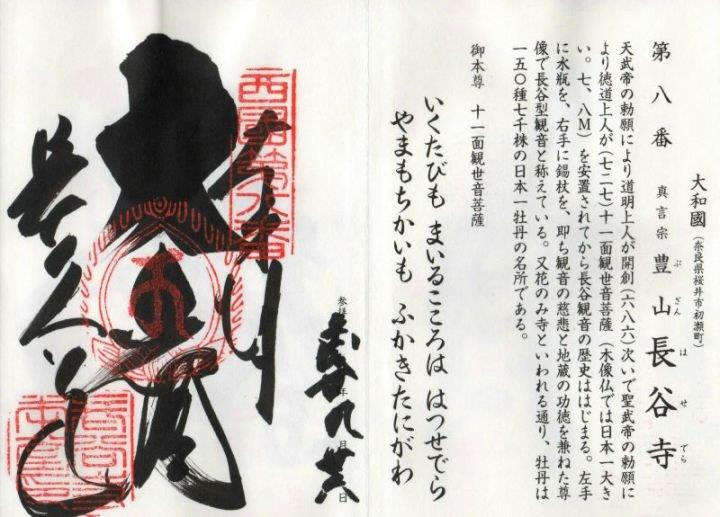 大和國(奈良県桜井市初瀬町)
第八番 真言宗 豊山 長谷寺
ぶざん はせでら
天武帝の勅願により道明上人が開創(六八六)次いで聖武帝の勅願に
より徳道上人が(七二七)十一面観世音菩薩(木像仏では日本一大き
い。七、八M)を安置されてから長谷観音の歴史ははじまる。左手
に水瓶を、右手に錫杖を、即ち観音の慈悲と地蔵の功徳を兼ねた尊
像で長谷型観音と称えている。又花のみ寺といわれる通り、牡丹は
一五〇種七千株の日本一牡丹の名所である。
御本尊 十一面観世音菩薩
いくたびも まいるこころは はつせでら
やまもちかいも ふかきたにがわ
参拝 年 月 日
西國第八番